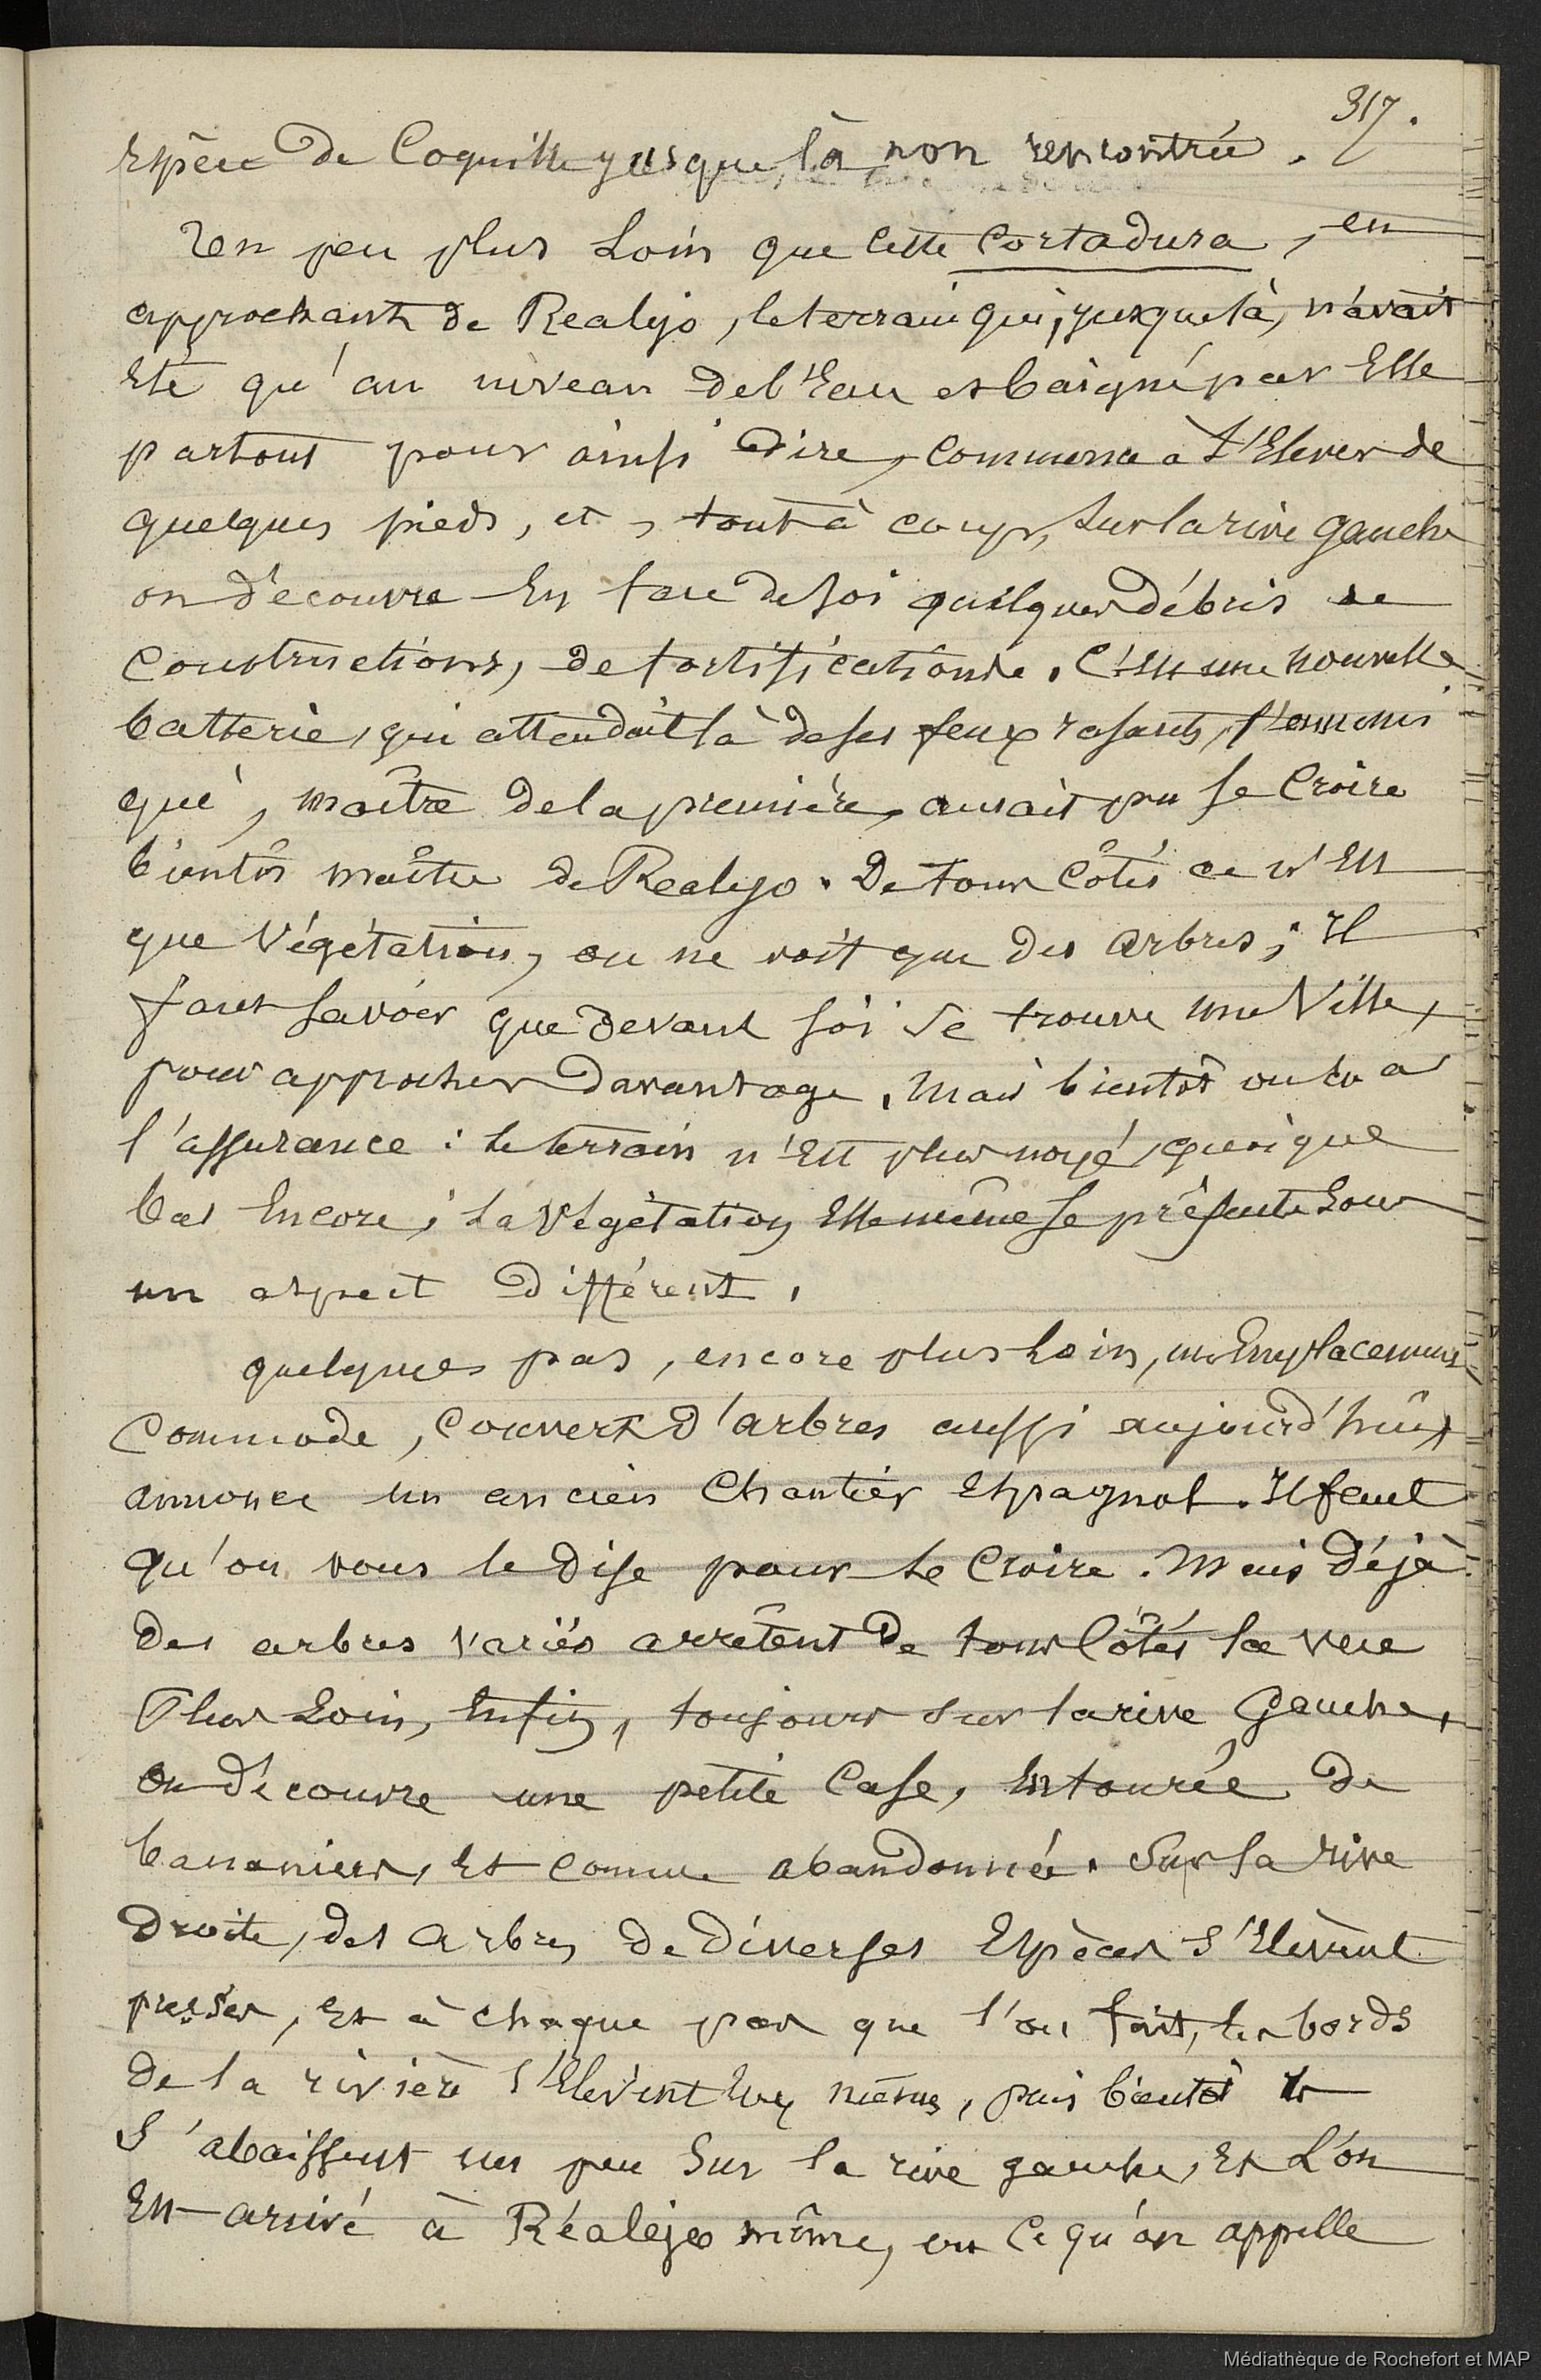 317.
espèce de Coquille jusque là non rencontrée.
Un peu plus loin que cette Cortadura, en
approchant de Realejo, le terrain qui, jusque là, n'avait
Eté qu'au niveau de l'Eau et baigné par Elle
partout pour ainsi dire, commence à s'Elever de
quelques pieds, et, tout à coup, sur la rive gauche
on découvre En face de soi quelques débris de
Constructions, de fortifications. C'Est une nouvelle
batterie, qui attendait là de ses feux rasants, l'ennemi
qui, maître de la première, aurait pu se Croire
bientôt maître de Realejo. De tous Côtés ce n'Est
que Végétation, on ne voit que des arbres; Il
faut savoir que devant soi se trouve une Ville,
pour approcher davantage. Mais bientôt on en a
l'assurance: le terrain n'Est plus noyé, quoique
bas Encore; la Végétation Elle même se présente sous
un aspect différent.
quelques pas, encore plus loin, un Emplacement
Commode, Couvert d'arbres aussi aujourd'hui,
annonce un ancien Chantier Espagnol. Il faut
qu'on vous le dise pour le Croire. Mais déjà
des arbres variés arrêtent de tous Côtés la vue
Plus loin, Enfin, toujours sur la rive Gauche,
on découvre une petite Case, Entourée de
bananiers, Et comme abandonnée. Sur la rive
Droite, des arbres de diverses Espèces s'Elèvent
pressés, Et à chaque pas que l'on fait, les bords
de la rivière s'Elèvent Eux mêmes, puis bientôt
S'abaissent un peu Sur la rive gauche, Et L'on
Est arrivé à Réalejo même, ou Ce qu'on appelle
Médiathèque de Rochefort et MAP